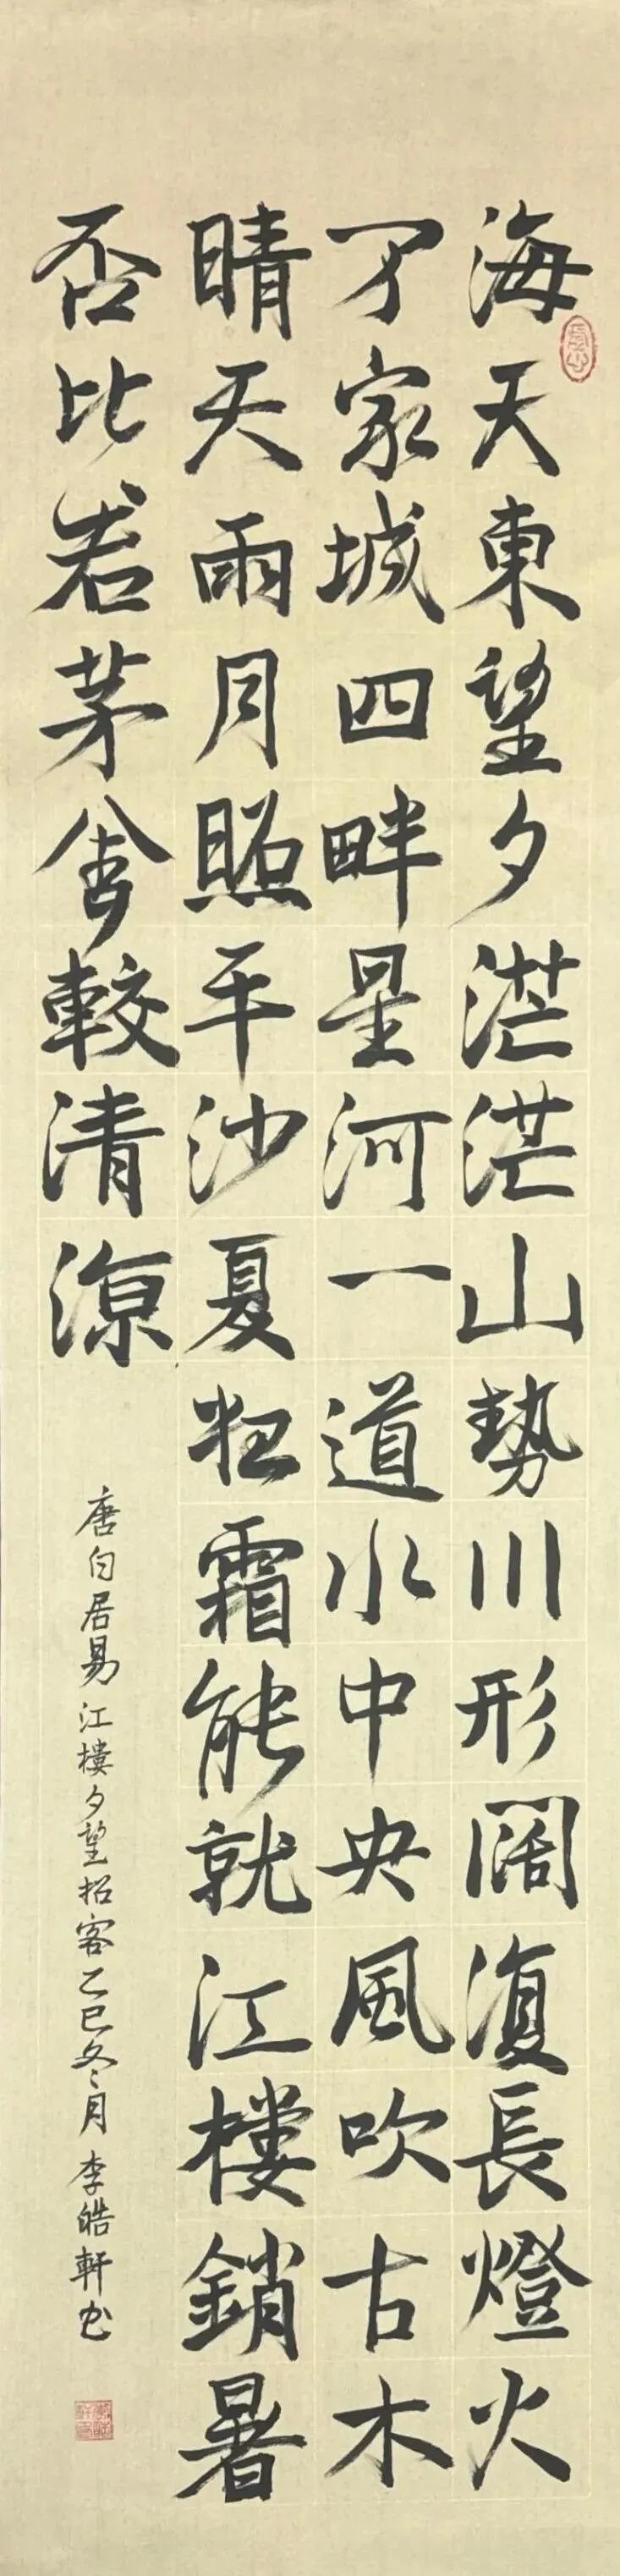 海天東望夕茫茫山勢川形闊復長燈火
万家城四畔星河一道水中央風吹古木
晴天雨月照平沙夏霜能就江樓銷暑
否比君茅舍較清涼
唐白居易江樓夕望招客乙巳冬月李皓軒书